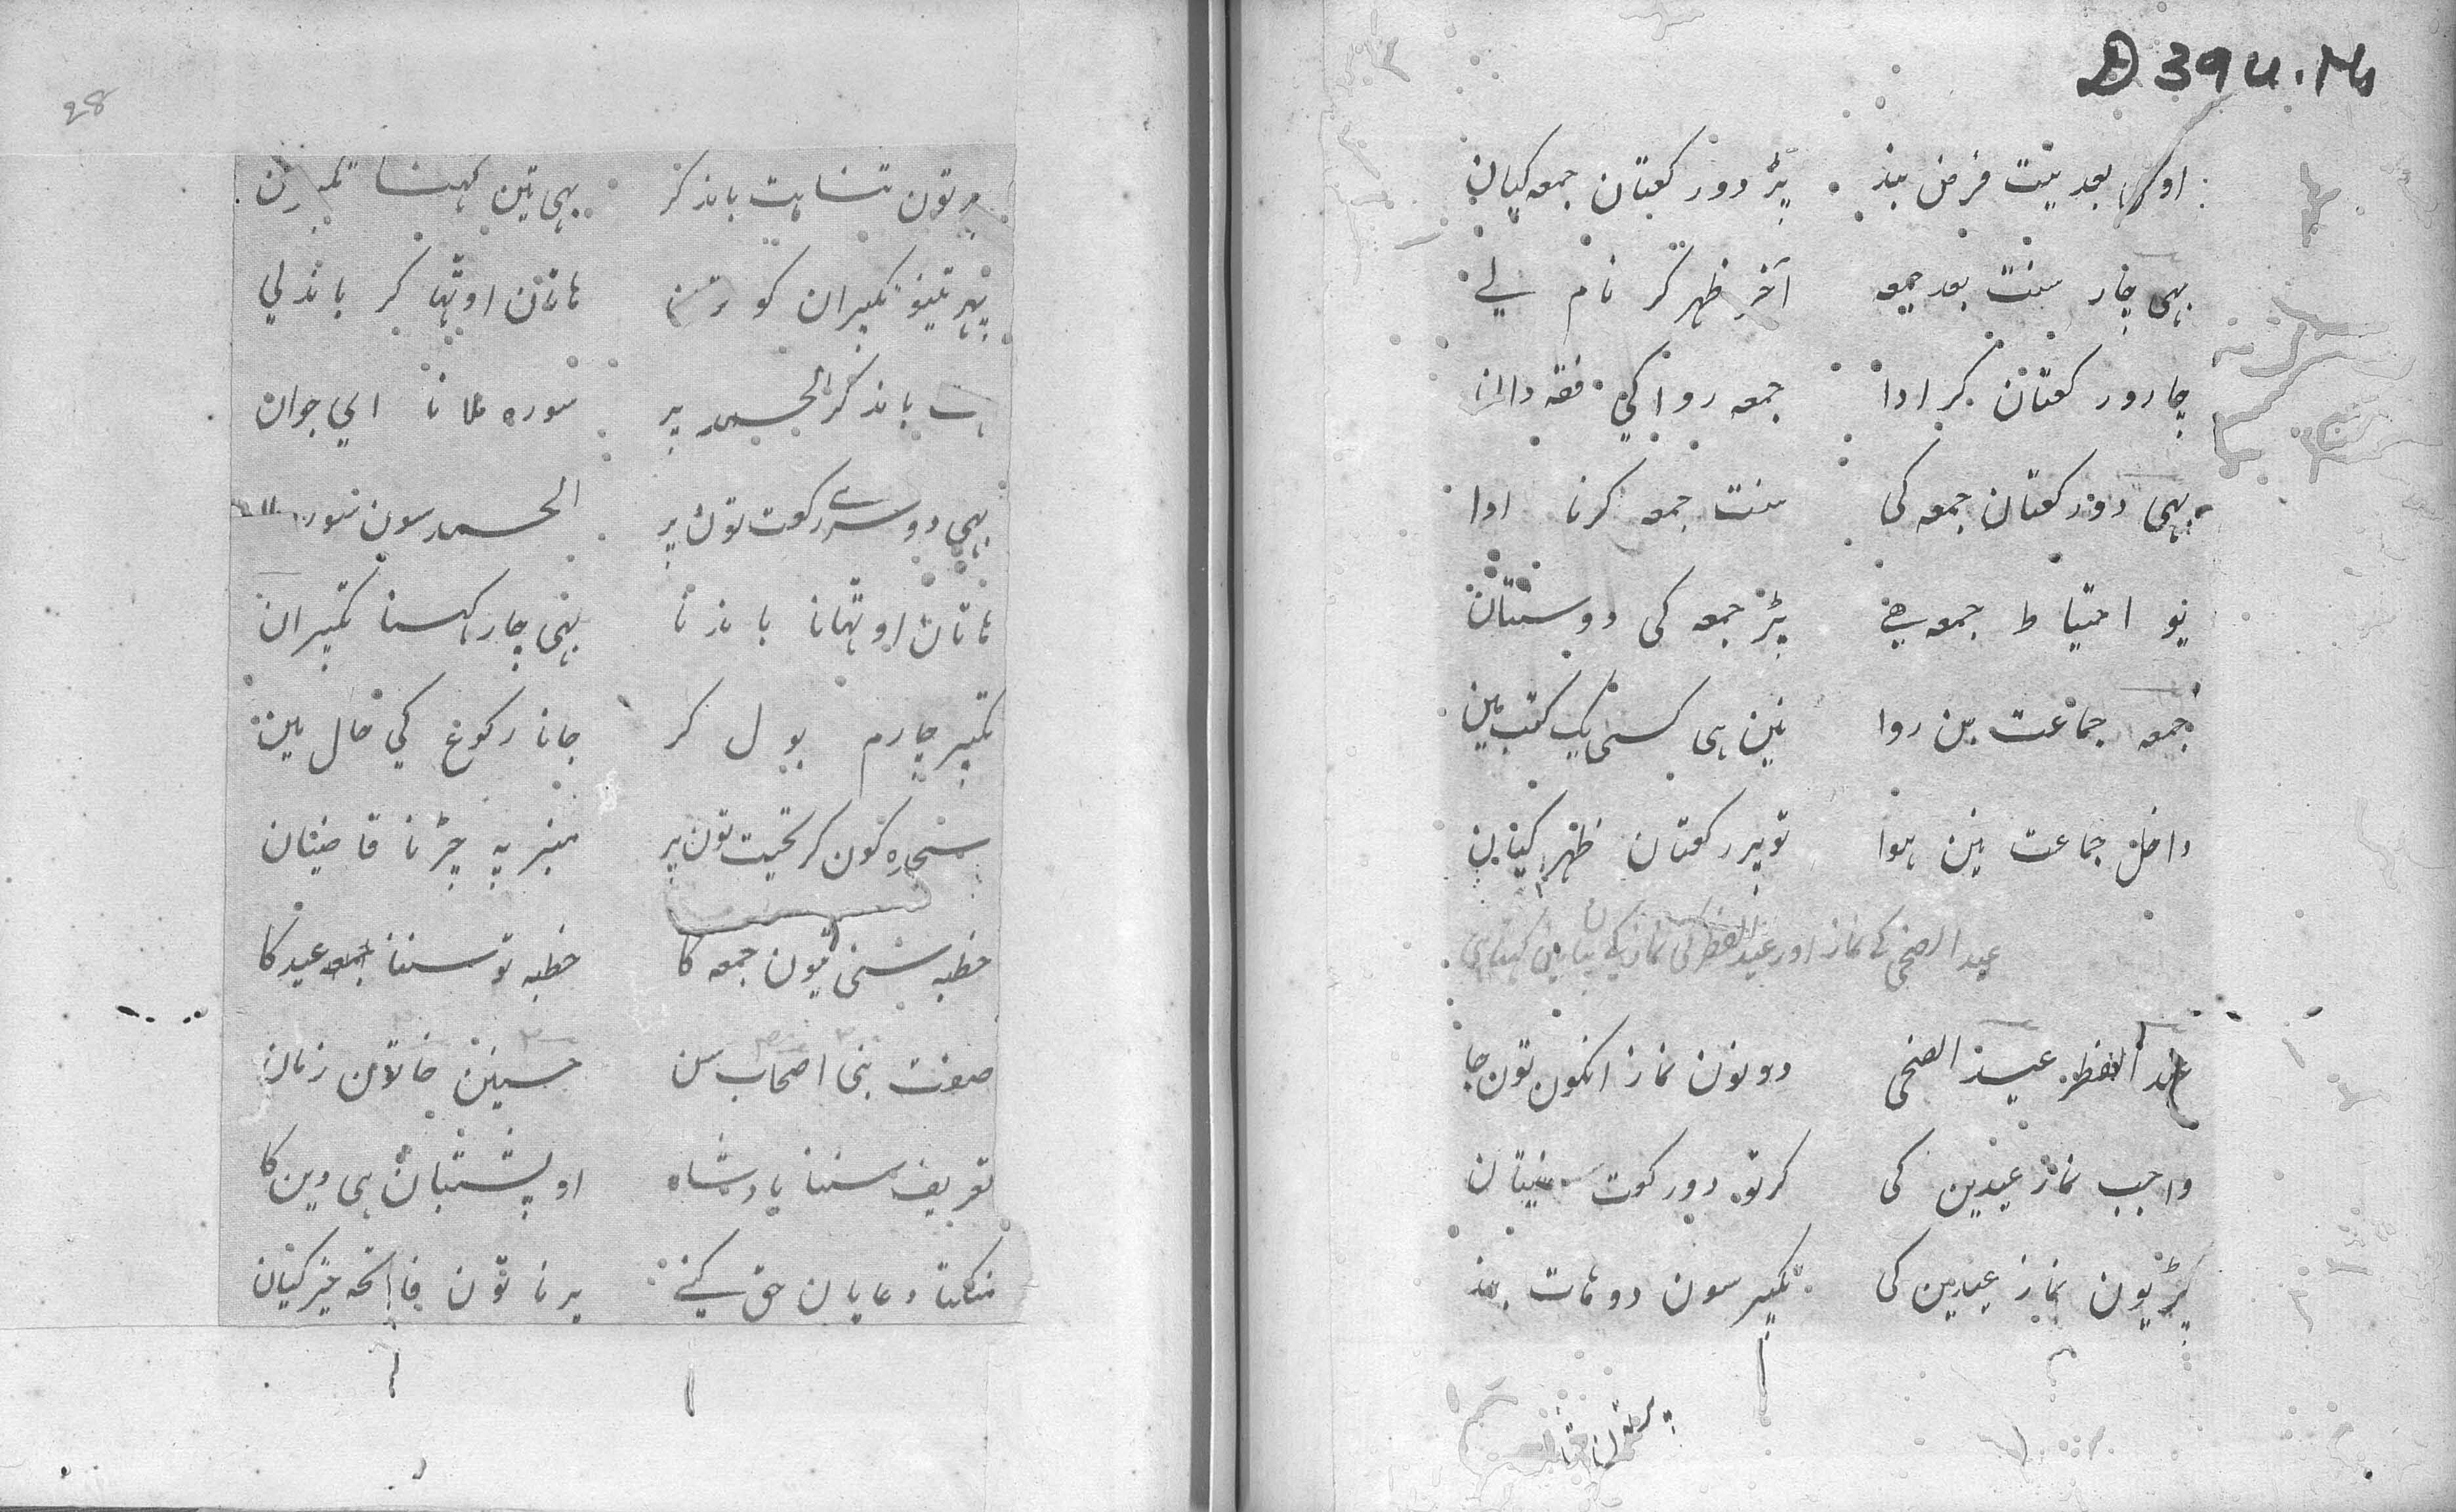 D 394.Ms
اوس بعد نیت فرض بند پڑ دو رکعتان جمعہ کیان
بہی چار سنت بعد جمعہ آخر ظہر کر نام لے
چارو رکعتان کر ادا جمعہ روا کی فقہ دان
بہی دو رکعتان جمعہ کی سنت جمعہ کرنا ادا
یو احتیاط جمعہ ہے پڑ جمعہ کی دو سنتان
جمعہ جماعت بن روا نین ہی کسی یک کتب مین
داخل جماعت نین ہوا تو پڑ رکعتان ظہر کیان
عید الضحی کے نماز اور عید الفطر کی نماز کے بیان مین کہتا ہی
عید الفطر عید الضحی دونون نماز انکون تون جا
واجب نماز عیدین کی کر تو دو رکوت
پڑیون نماز عیدین کی تکبیر سون دو ہات بند
98
پر تون ثنا ہت باند کر بہی تین کہنا تکبیران
پہر تینو تکبیران کو ہاتان اوٹہا کر باند لی
ہت باند کر الحمد پر سورہ ملانا ای جوان
بہی دوسرے رکوت تون پر الحمد سون سورہ
ہاتان اوٹہانا باندنا بہی چار کہنا تکبیران
تکبیر چارم بول کر جانا رکوع کی حال مین
سجدہ کون کر تحیت تون پر منبر پہ چڑنا قاضیان
خطبہ سنی تیون جمعہ کا خطبہ تو سننا عید کا
صفت نبی اصحاب سن حسنین خاتون زنان
تعریف سننا بادشاہ او پشتبان ہی دین کا
منگنا دعایان حق کنے پرنا تون فاتحہ خیر کیان